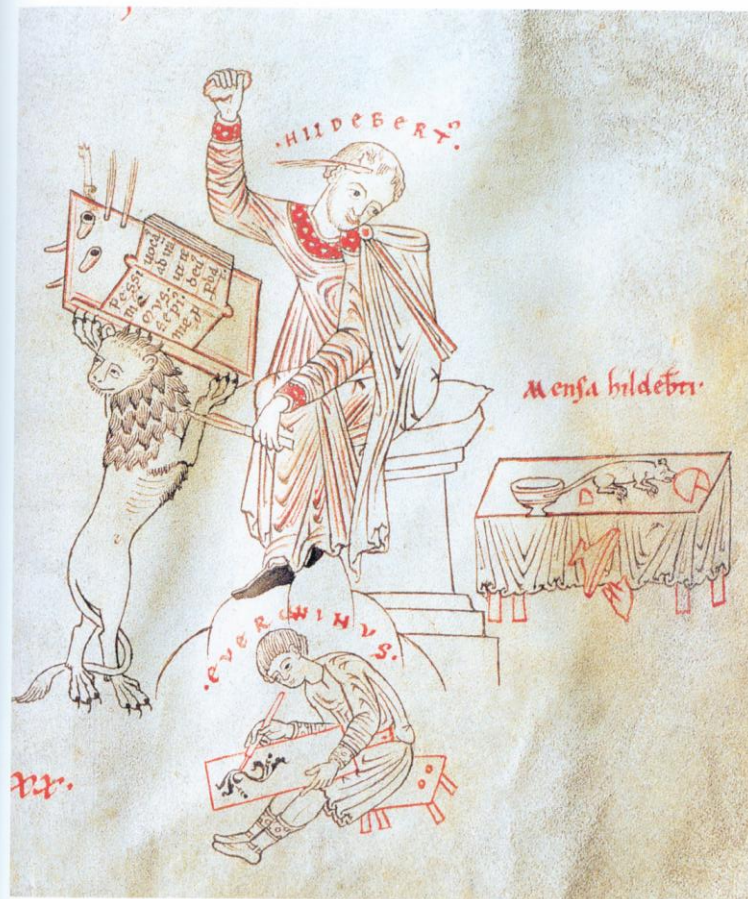 ·HILDEBERTꝰ·
Pessi
me
mus.
sepiꝰ
me p
uocas
ad irā
ut te
deus
pdat
Mensa hildebti·
·EVERWINVS·